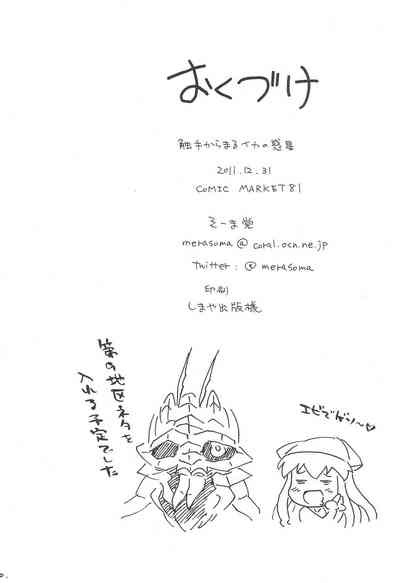 おくづけ
触手からまるイカの惑星
2011.12.31
COMIC MARKET 81
そーま党
merasoma@coral.ocn.ne.jp
Twitter:@merasoma
印刷
しまや出版様
第9地区ネタを
入れる予定でした
エビでゲソ～♡